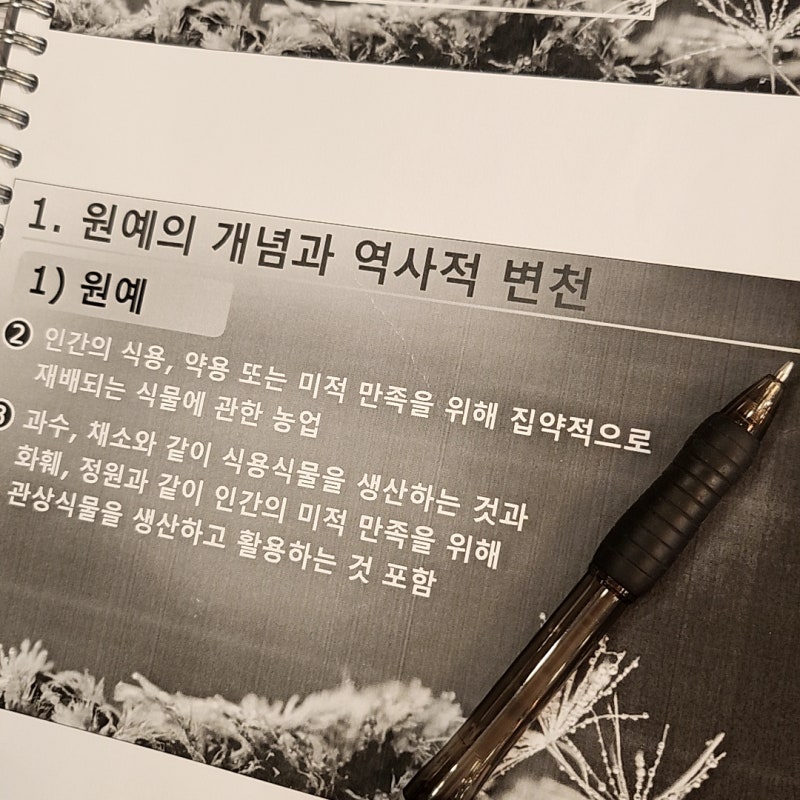 1. 원예의 개념과 역사적 변천
1) 원예
❷ 인간의 식용, 약용 또는 미적 만족을 위해 집약적으로
재배되는 식물에 관한 농업
❸ 과수, 채소와 같이 식용식물을 생산하는 것과
화훼, 정원과 같이 인간의 미적 만족을 위해
관상식물을 생산하고 활용하는 것 포함